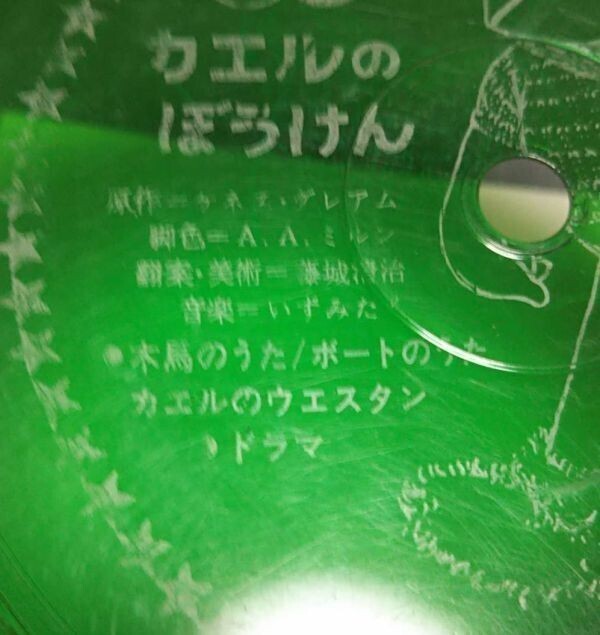 カエルの
ぼうけん
原作=ケネス・グレアム
脚色=A.A.ミルン
翻案・美術=藤城清治
音楽=いずみたく
●木馬のうた/ボートのうた
カエルのウエスタン
●ドラマ